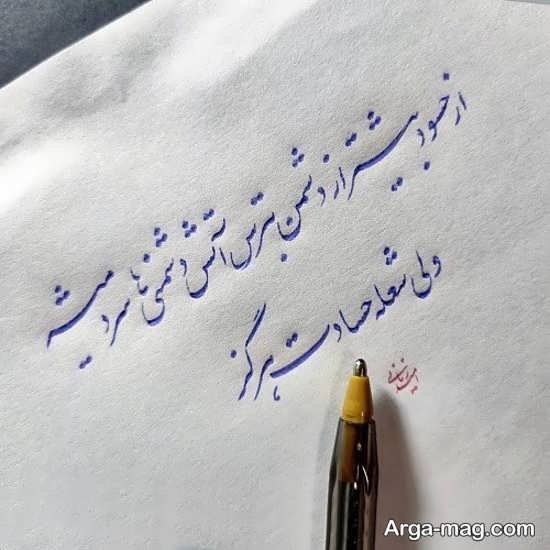 از حسود بیشتر از دشمن بترس آتش دشمنی ها سرد میشه
ولی شعله حسادت هرگز
Arga-mag.com